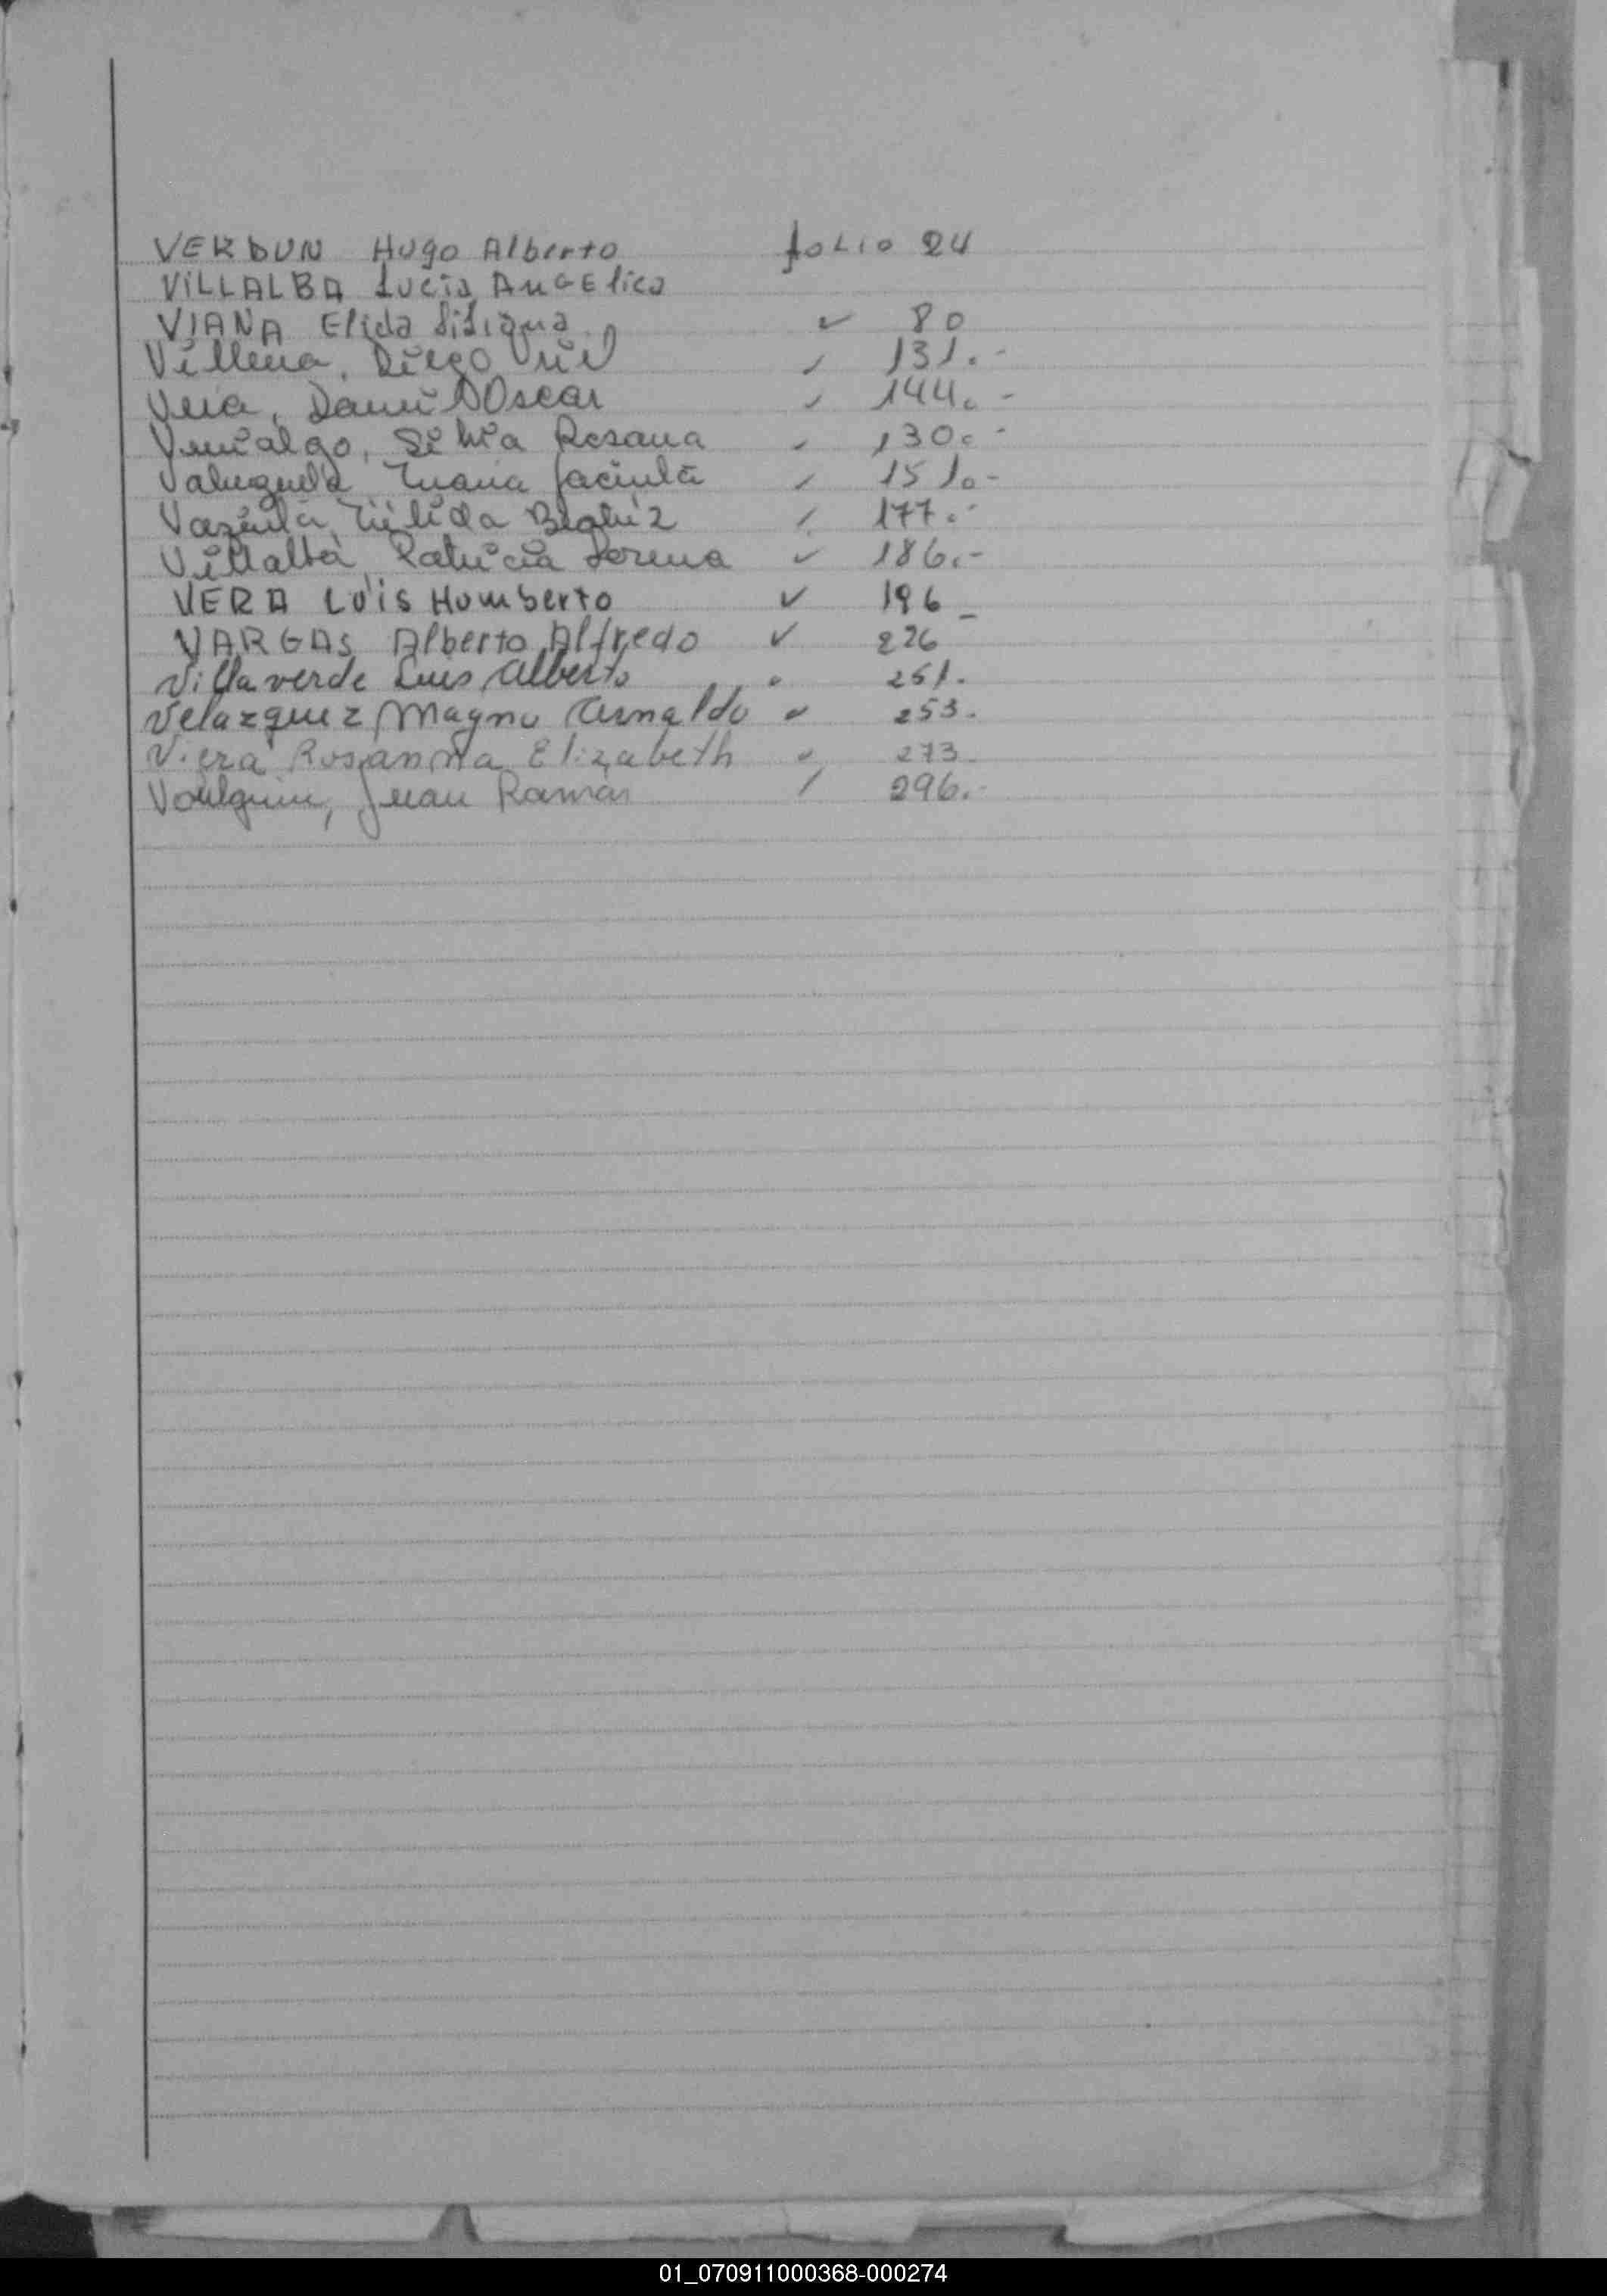 VERDUN Hugo Alberto folio 24
VILLALBA Lucia Angelica
VIANA Elida ✓ 80
Villena, Diego Uriel ✓ 131.-
Vera, Daniel Oscar ✓ 144.-
Venialgo, Silvia Rosana ✓ 130.-
Maria Jacinta ✓ 151.-
Beatriz ✓ 177.-
Villalba, Patricia Lorena ✓ 186.-
VERA Luis Humberto ✓ 196 -
VARGAS Alberto Alfredo ✓ 226
Villaverde Luis Alberto " 251.
Velazquez Magno Arnaldo ✓ 253.
Viera Rosanna Elizabeth ✓ 273
Juan Ramón ✓ 296.-
01_070911000368-000274